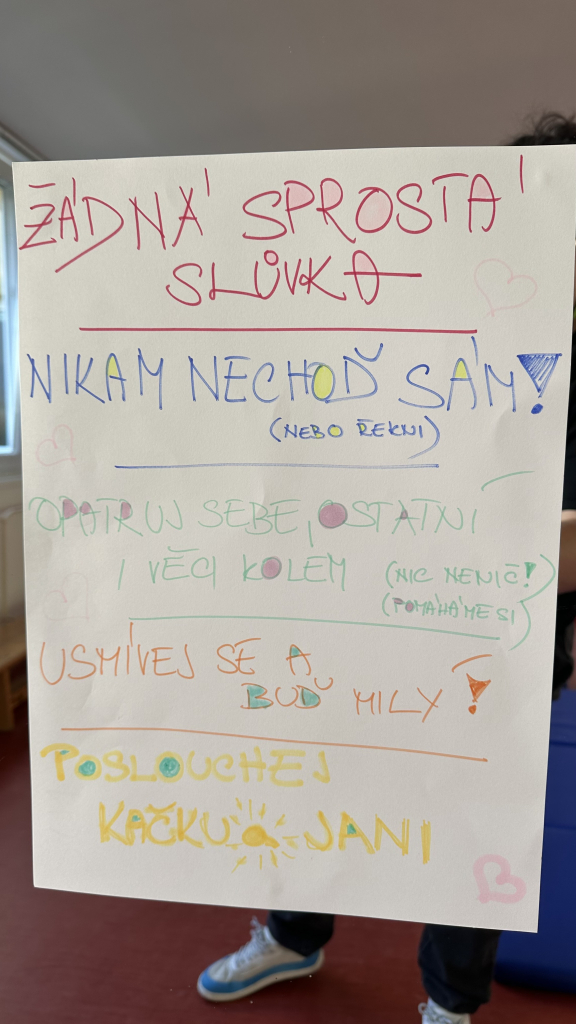 ŽÁDNÁ SPROSTÁ
SLŮVKA
NIKAM NECHOĎ SÁM!
(NEBO ŘEKNI)
OPATRUJ SEBE, OSTATNÍ
I VĚCI KOLEM (NIC NENIČ!)
(POMÁHÁME SI)
USMÍVEJ SE A
BUĎ MILÝ!
POSLOUCHEJ
KAČKU A JANI